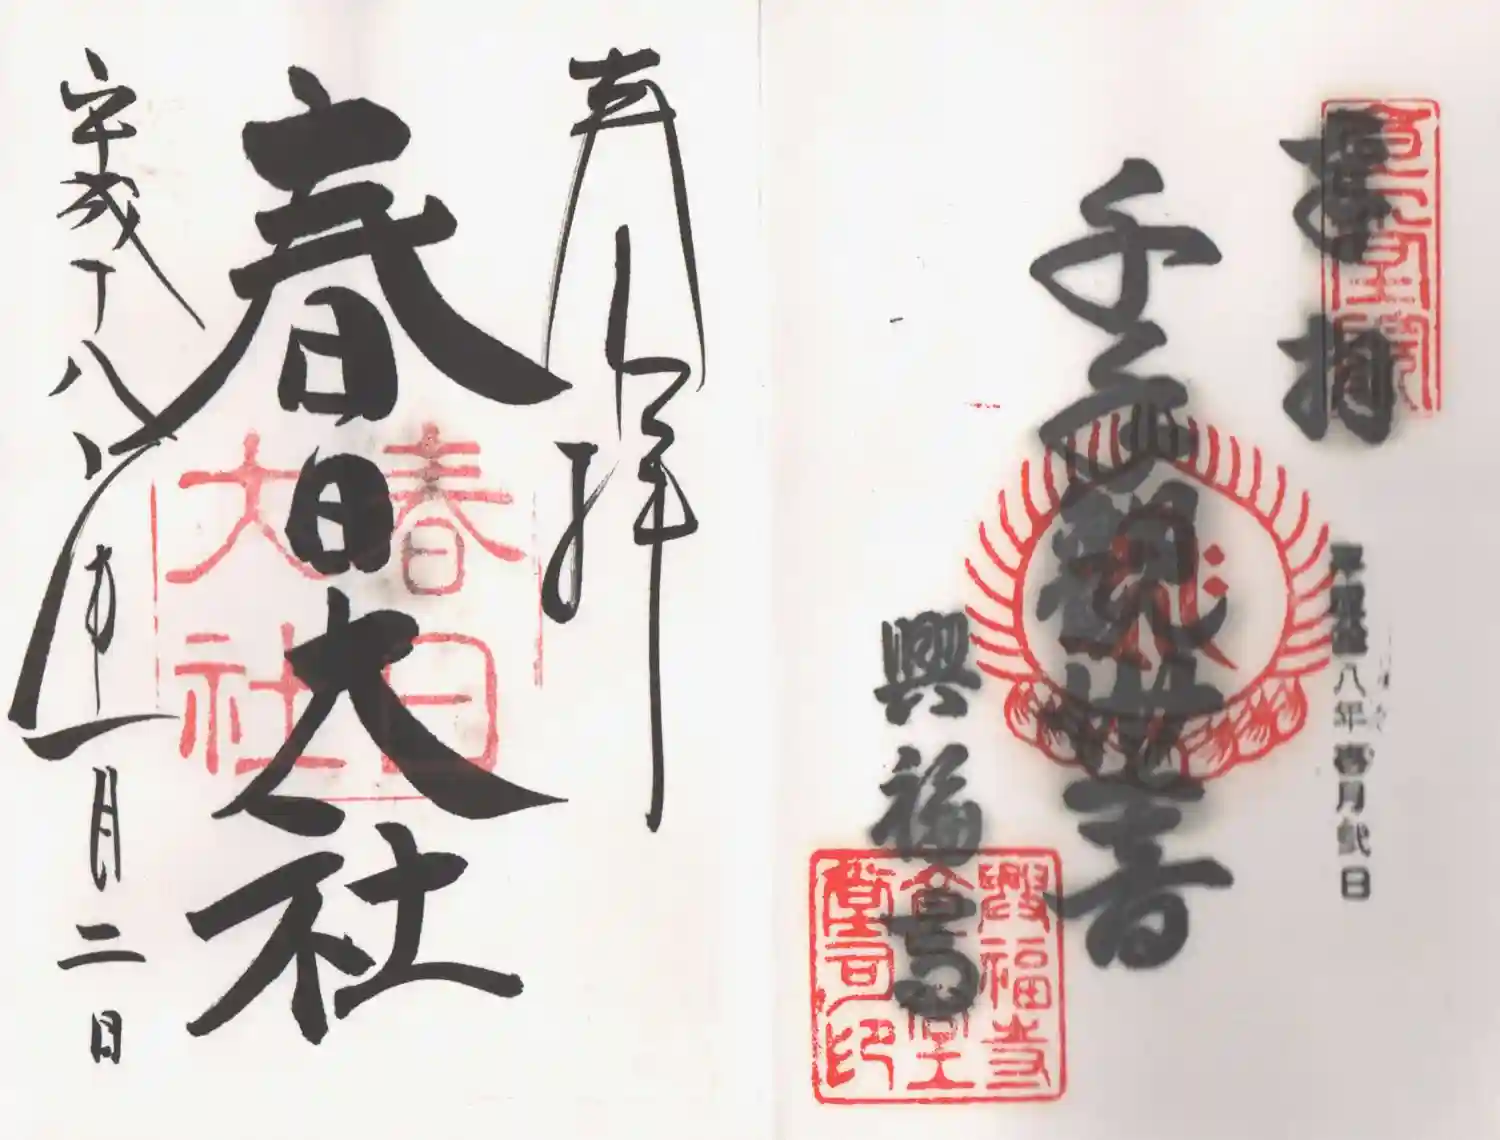 奉拝
春日大社
平成十八年一月二日
春日
大社
奉拝
千手観世音
平成拾八年壱月弐日
興福寺
興福寺
食堂
印